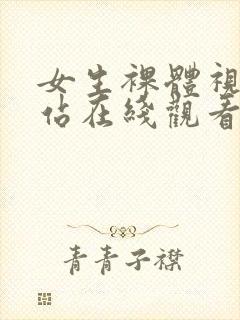 女生裸體視
佔在綫觀看
青青子襟